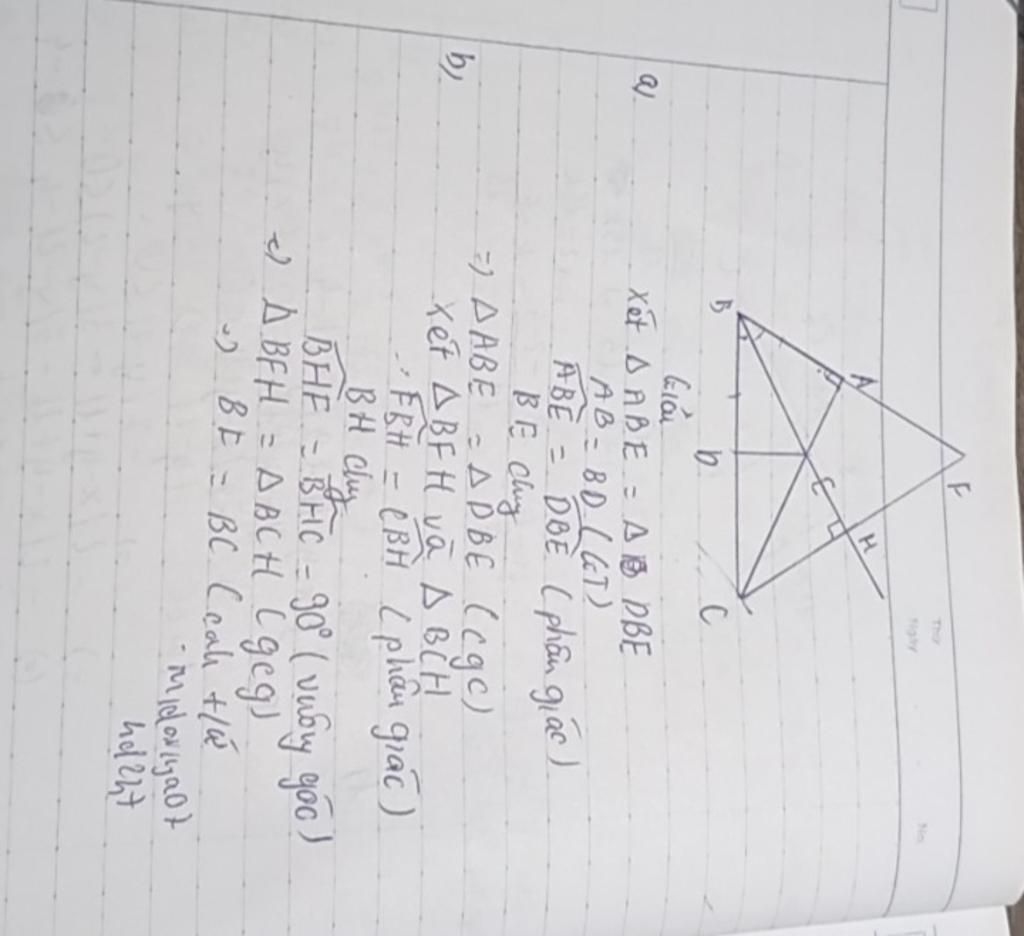 Thứ
Ngày
No.
F
A
H
E
B
D
C
Giải
a) Xét △ABE = △DBE
AB = BD (GT)
ABE = DBE (phân giác)
BE chung
=) △ABE = △DBE (cgc)
b) Xét △BFH và △BCH
FBH = CBH (phân giác)
BH chung
BHF = BHC = 90° (vuông góc)
=) △BFH = △BCH (gcg)
=) BF = BC (cạh t/ứ
- midoriya07
hd2h7